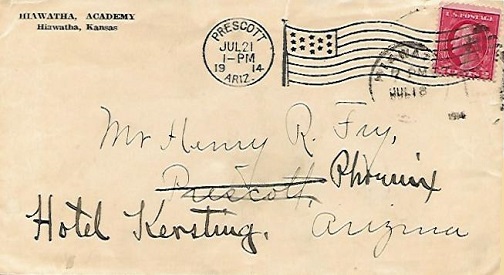 HIAWATHA, ACADEMY
Hiawatha, Kansas
PRESCOTT
JUL 21
1-PM
1914
ARIZ.
U.S. POSTAGE
HIAWATHA
7 PM
JUL 18
1914
Mr Henry R. Fry,
Prescott, Phoenix
Hotel Kersting. Arizona